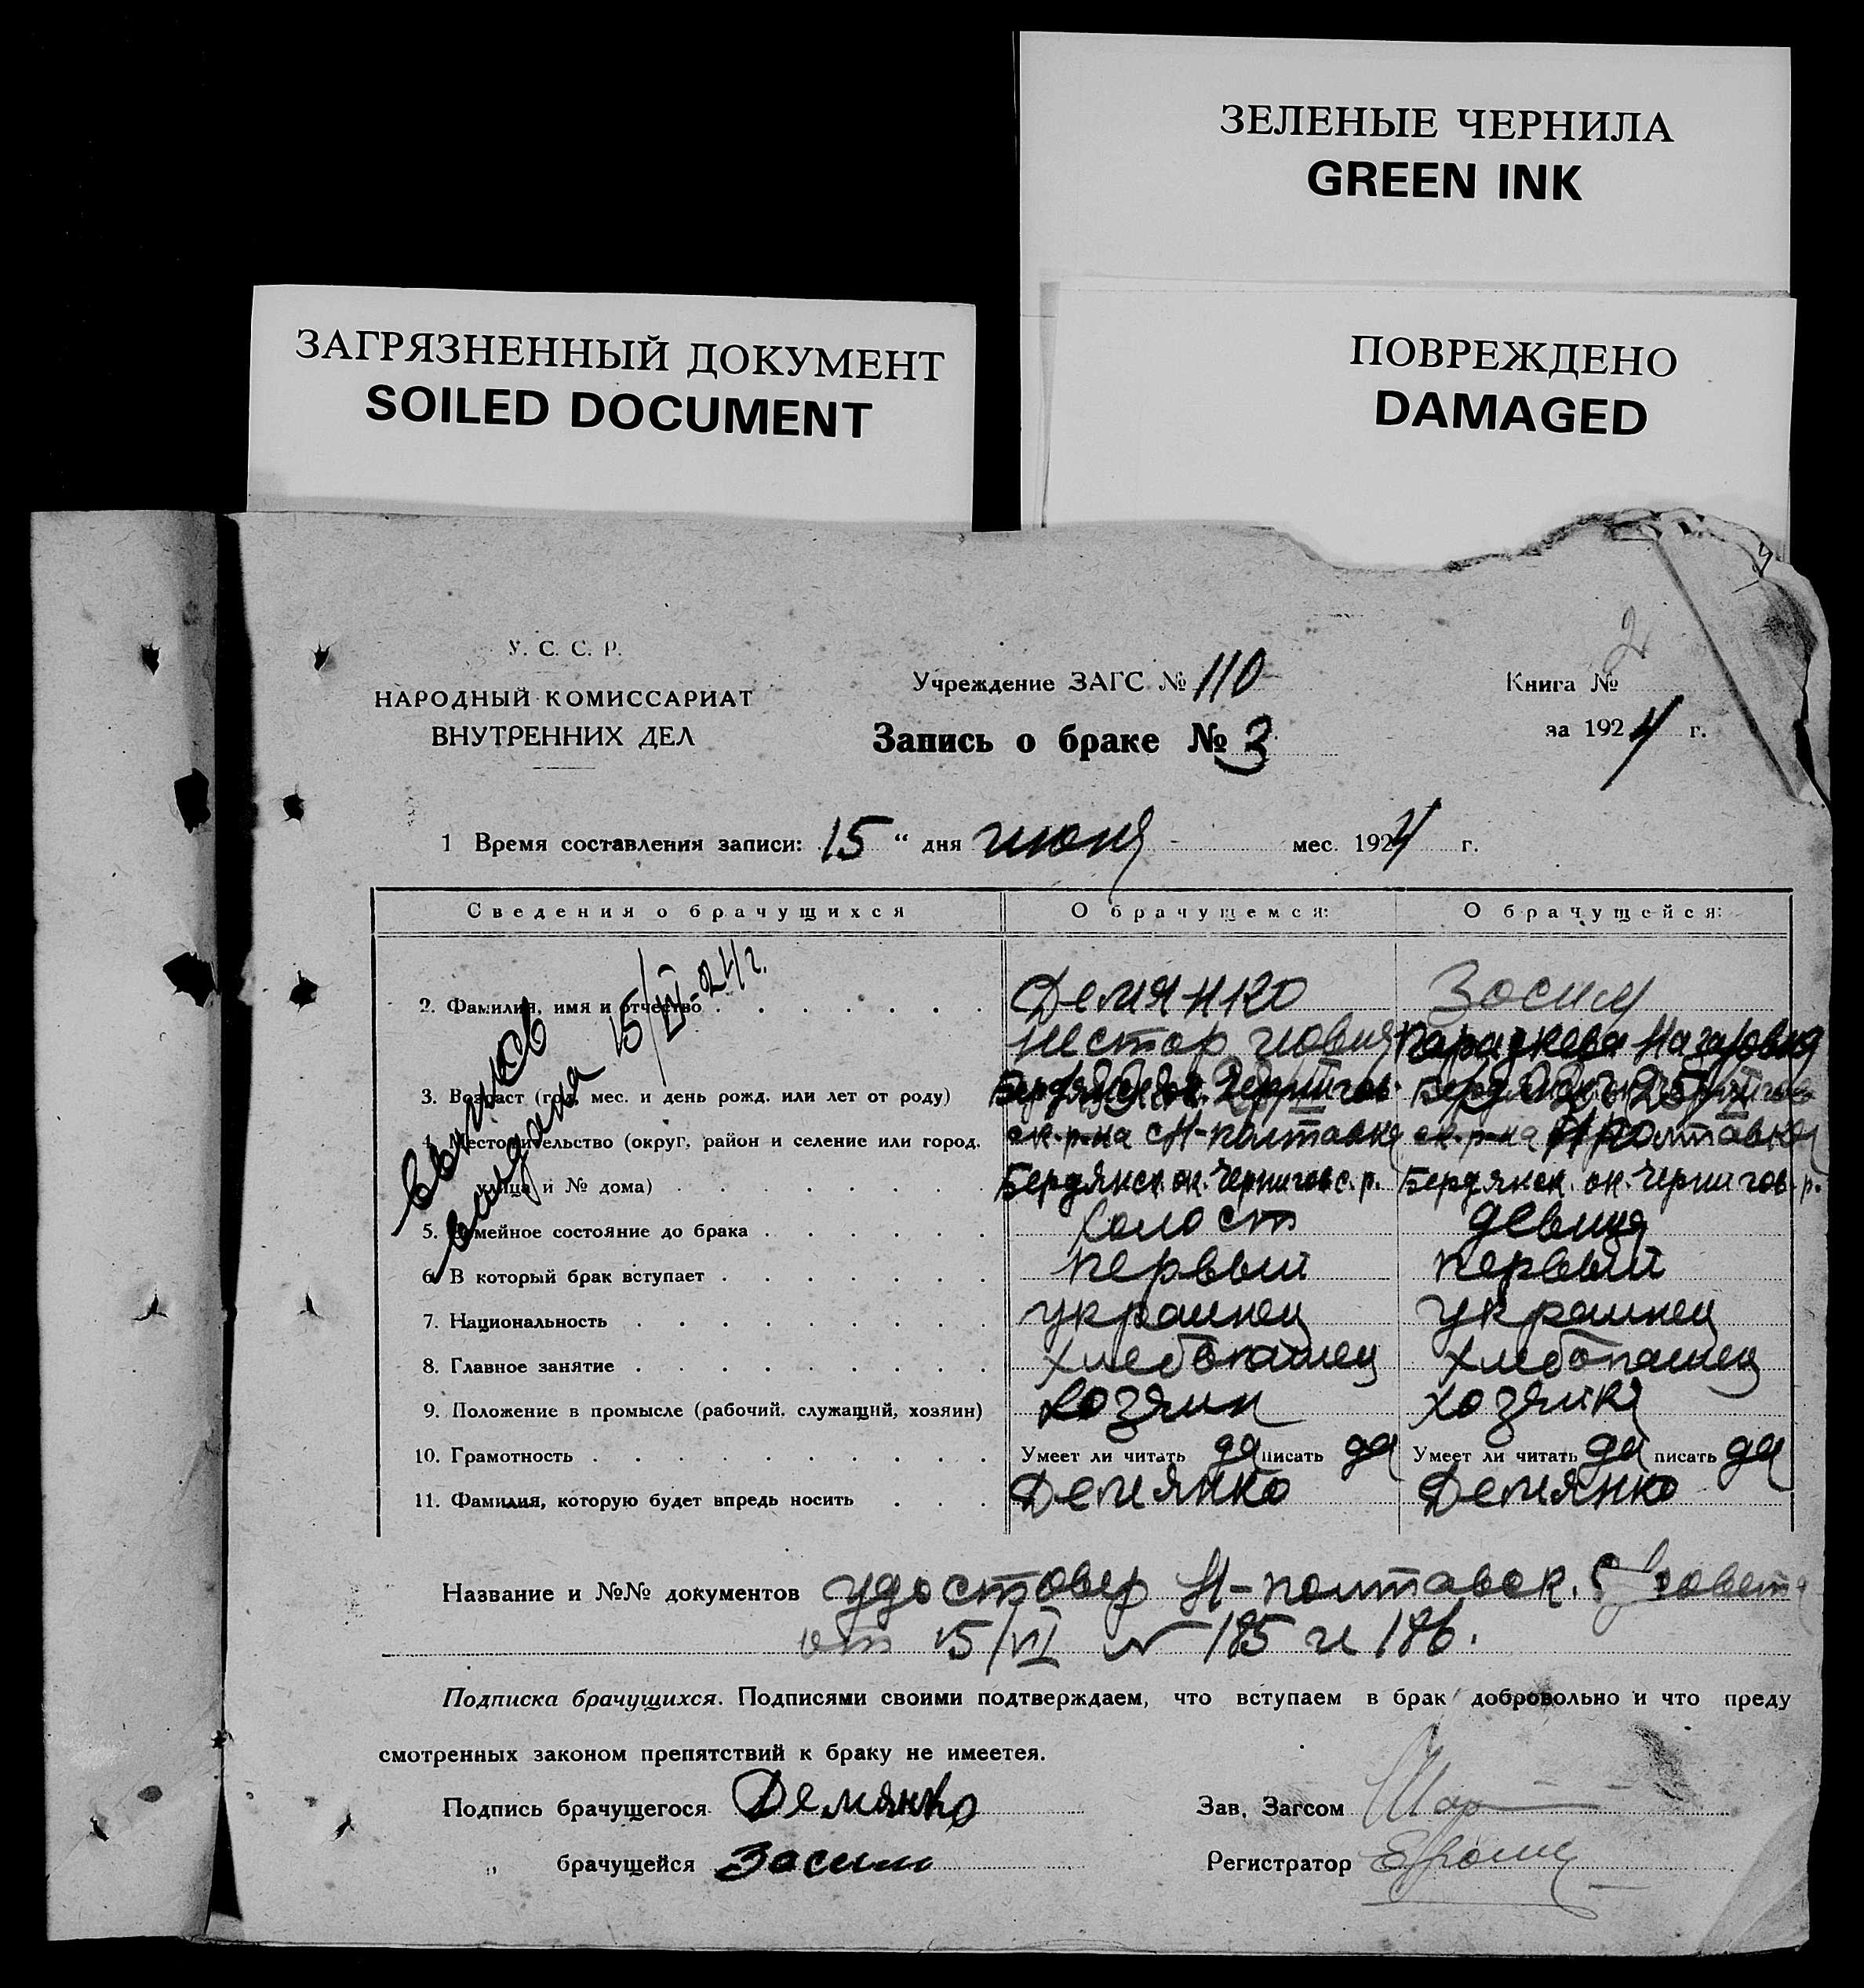 ЗЕЛЕНЫЕ ЧЕРНИЛА
GREEN INK
ЗАГРЯЗНЕННЫЙ ДОКУМЕНТ
SOILED DOCUMENT
ПОВРЕЖДЕНО
DAMAGED
У. С. С. Р.
НАРОДНЫЙ КОМИССАРИАТ
ВНУТРЕННИХ ДЕЛ
Учреждение ЗАГС № 110
Запись о браке № 3
Книга № 2
за 1924 г.
1 Время составления записи: 15 " дня июня мес. 1924 г.
Сведения о брачущихся О брачущемся: О брачущейся:
выпись
выдана 15/VI-24 г.
2. Фамилия, имя и отчество Демянко Зосим
Нестор Парадкева Назаровна
3. Возраст (год, мес. и день рожд. или лет от роду)
4. Местожительство (округ, район и селение или город, ок. р-на Н-полтавка ок. р-на Н полтавка
улица и № дома) Бердянск. ок. Чернигов с. р. Бердянск. ок. Чернигов. р.
5. Семейное состояние до брака холост девица
6. В который брак вступает первый первый
7. Национальность украинец украинец
8. Главное занятие хлебопашец хлебопашец
9. Положение в промысле (рабочий, служащий, хозяин) хозяин хозяйка
10. Грамотность Умеет ли читать да писать да Умеет ли читать да писать да
11. Фамилия, которую будет впредь носить Демянко Демянко
Название и №№ документов удостовер Н-полтавск. совета
от 15/VI № 185 и 186.
Подписка брачущихся. Подписями своими подтверждаем, что вступаем в брак добровольно и что преду
смотренных законом препятствий к браку не имеетея.
Подпись брачущегося Демянко Зав, Загсом
„ брачущейся Засим Регистратор